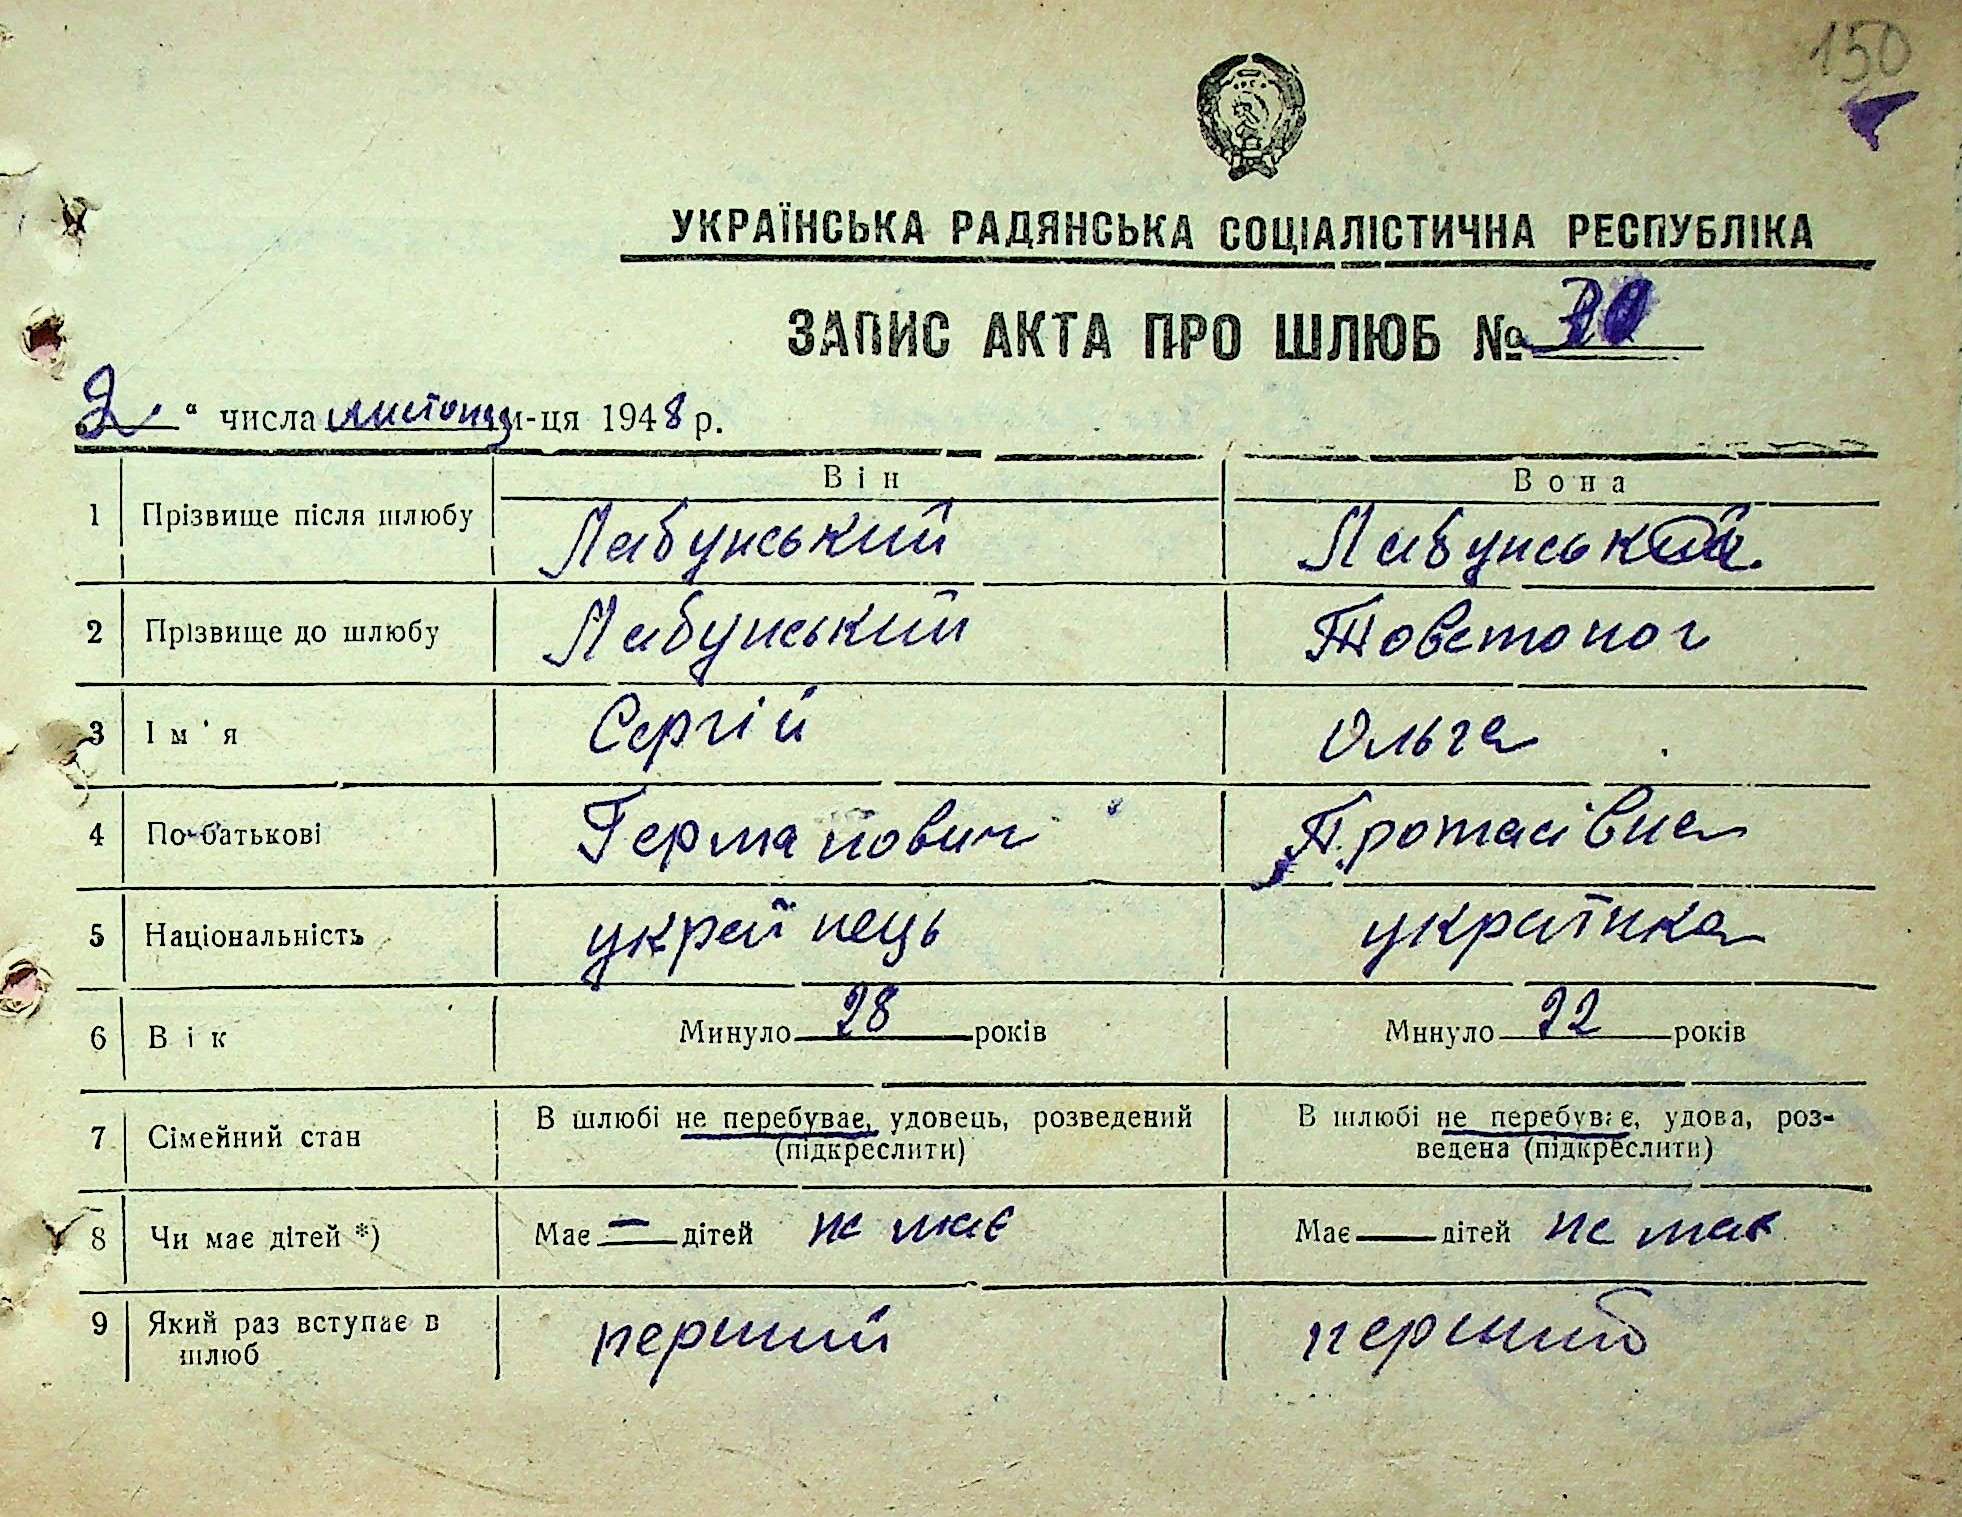 150
УКРАЇНСЬКА РАДЯНСЬКА СОЦІАЛІСТИЧНА РЕСПУБЛІКА
ЗАПИС АКТА ПРО ШЛЮБ №
2 " числа листопад м-ця 1948 р.
Він Вона
1 Прізвище після шлюбу Лабунський Лабунська
2 Прізвище до шлюбу Лабунський Товстоног
3 Ім'я Сергій Ольга
4 По-батькові Германович Протасівна
5 Національність українець українка
6 Вік Минуло 28 років Минуло 22 років
7 Сімейний стан В шлюбі не перебуває, удовець, розведений (підкреслити) В шлюбі не перебуває, удова, роз-
ведена (підкреслити)
8 Чи має дітей *) Має — дітей не має Має дітей не має
9 Який раз вступає в шлюб перший перший